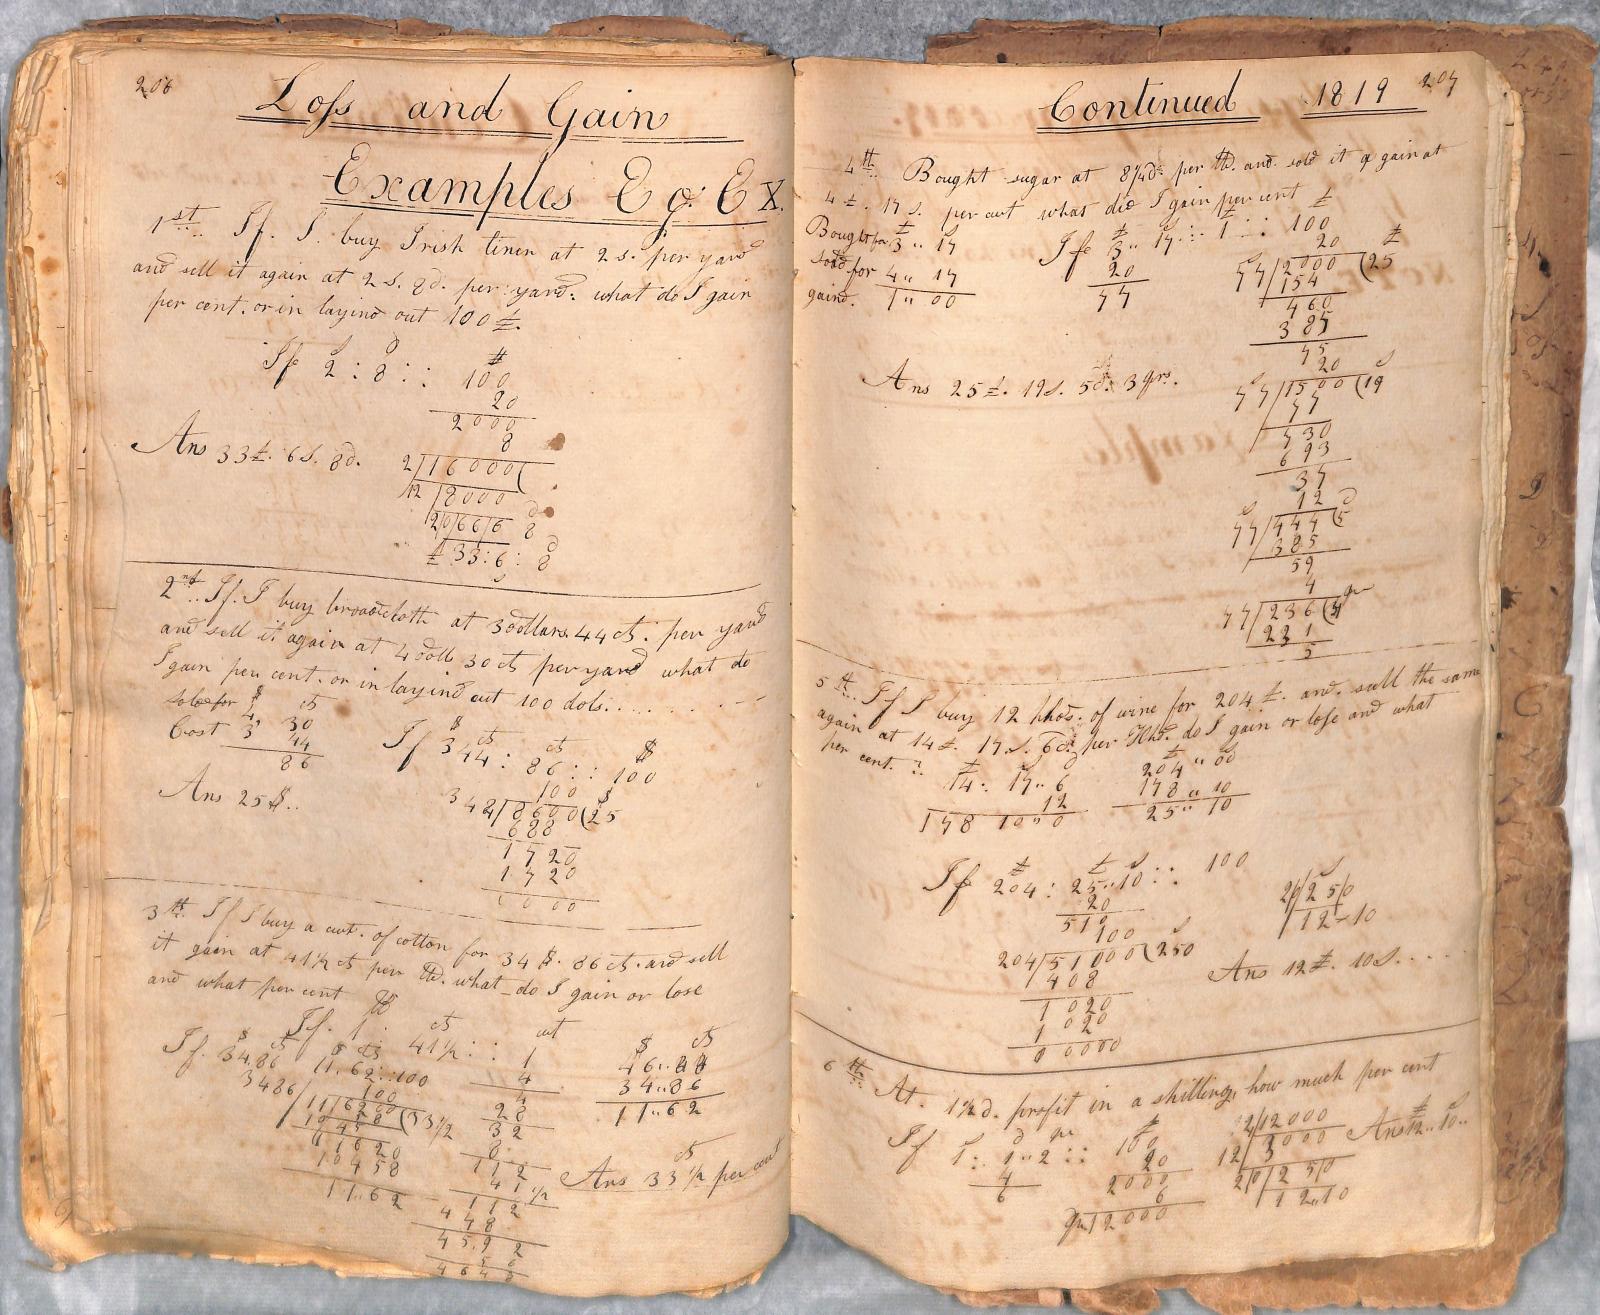 206
Loss and Gain
Examples E. g. EX.
1st. If. I. buy Irish linen at 2 s. per yard
and sell it again at 2 s. 8d. per yard. what do I gain
per cent. or in laying out 100 £.
If 2 : 8 : : 100
20
2000
8
Ans 33£. 6s. 8d.
2/16000(
12/8000
20/666 8
£33:6:8
2nd. If. I buy broadcloth at 3 dollars. 44 cts. per yard
and sell it again at 4 doll 30 cts per yard what do
I gain per cent. or in laying out 100 dols.
sold for $ cts
4, 30
Cost 3 44
86
If 3 44 : 86 : : 100
100
344/8600(25
688
1720
1720
0000
Ans 25 $..
3th. If I buy a cwt. of cotton for 34 $. 86 cts. and sell
it gain at 41½ cts per lb. what do I gain or lose
and what per cent
If. 1 : 41½ : : 1
4
4
28
32
8
112
41 ½
112
448
4592
56
4648
$ cts
46..48
34..86
11..62
If. 34.86 11.62::100
100
3486/116200(33 1/3
10458
11620
10458
1162
Ans 33 1/3 per cent
Continued 1819 207
4th. Bought sugar at 8¼d. per lb. and sold it a gain at
4 £. 17 s. per cwt what did I gain per cent
Bought for 3 .. 17
sold for 4 .. 17
gaind. 1 .. 00
If 3 .. 17 : 1 : : 100
20
77
20
77/2000(25
154
460
385
75
20
77/1500(19
77
730
693
37
12
77/444(5
385
59
4
77/236(3
231
5
Ans 25£. 19s. 5d. 3qrs.
5th. If I buy 12 hhds. of wine for 204 £. and. sell the same
again at 14£. 17 s. 6d. per Hhd. do I gain or lose and what
per cent.
14 : 17 .. 6
12
178 10 .. 0
204 .. 00
178 .. 10
25 .. 10
If 204 : 25 .. 10 : : 100
20
510
100
204/51000(250
408
1020
1020
00000
20/250
12-10
Ans 12£. 10s.
6th. At. 1½d. profit in a shilling, how much per cent
If 1 : 1 .. 2 : : 100
4
6
20
2000
6
12000
4/12000
12/3000
20/250
12..10
Ans 12 .. 10 ..